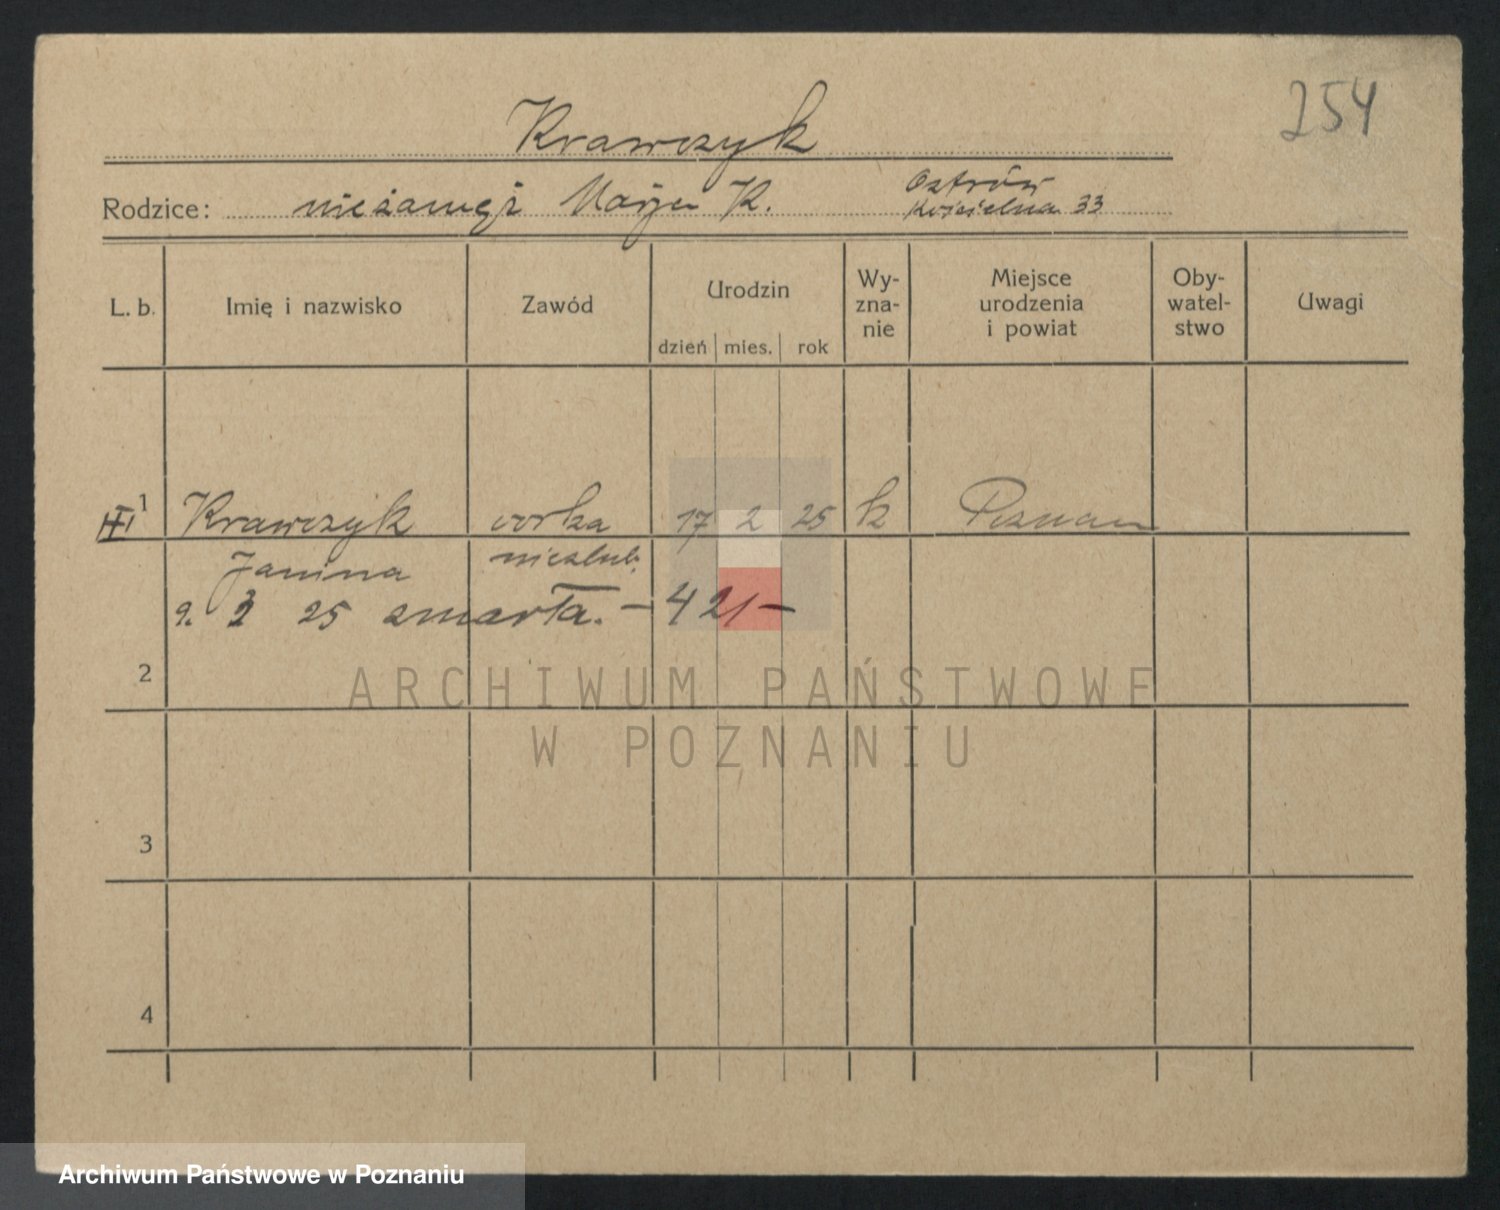 254
Krawczyk
Rodzice: niezamęż Marja K. Ostrów
Kościelna 33
L. b. Imię i nazwisko Zawód Urodzin dzień mies. rok Wy-zna-nie Miejsce urodzenia i powiat Oby-watel-stwo Uwagi
1 Krawczyk córka 17 2 25 k Poznań
Janina nieślub.
9. 3 25 zmarła. – 421 –
2
3
4
ARCHIWUM PAŃSTWOWE
W POZNANIU
Archiwum Państwowe w Poznaniu